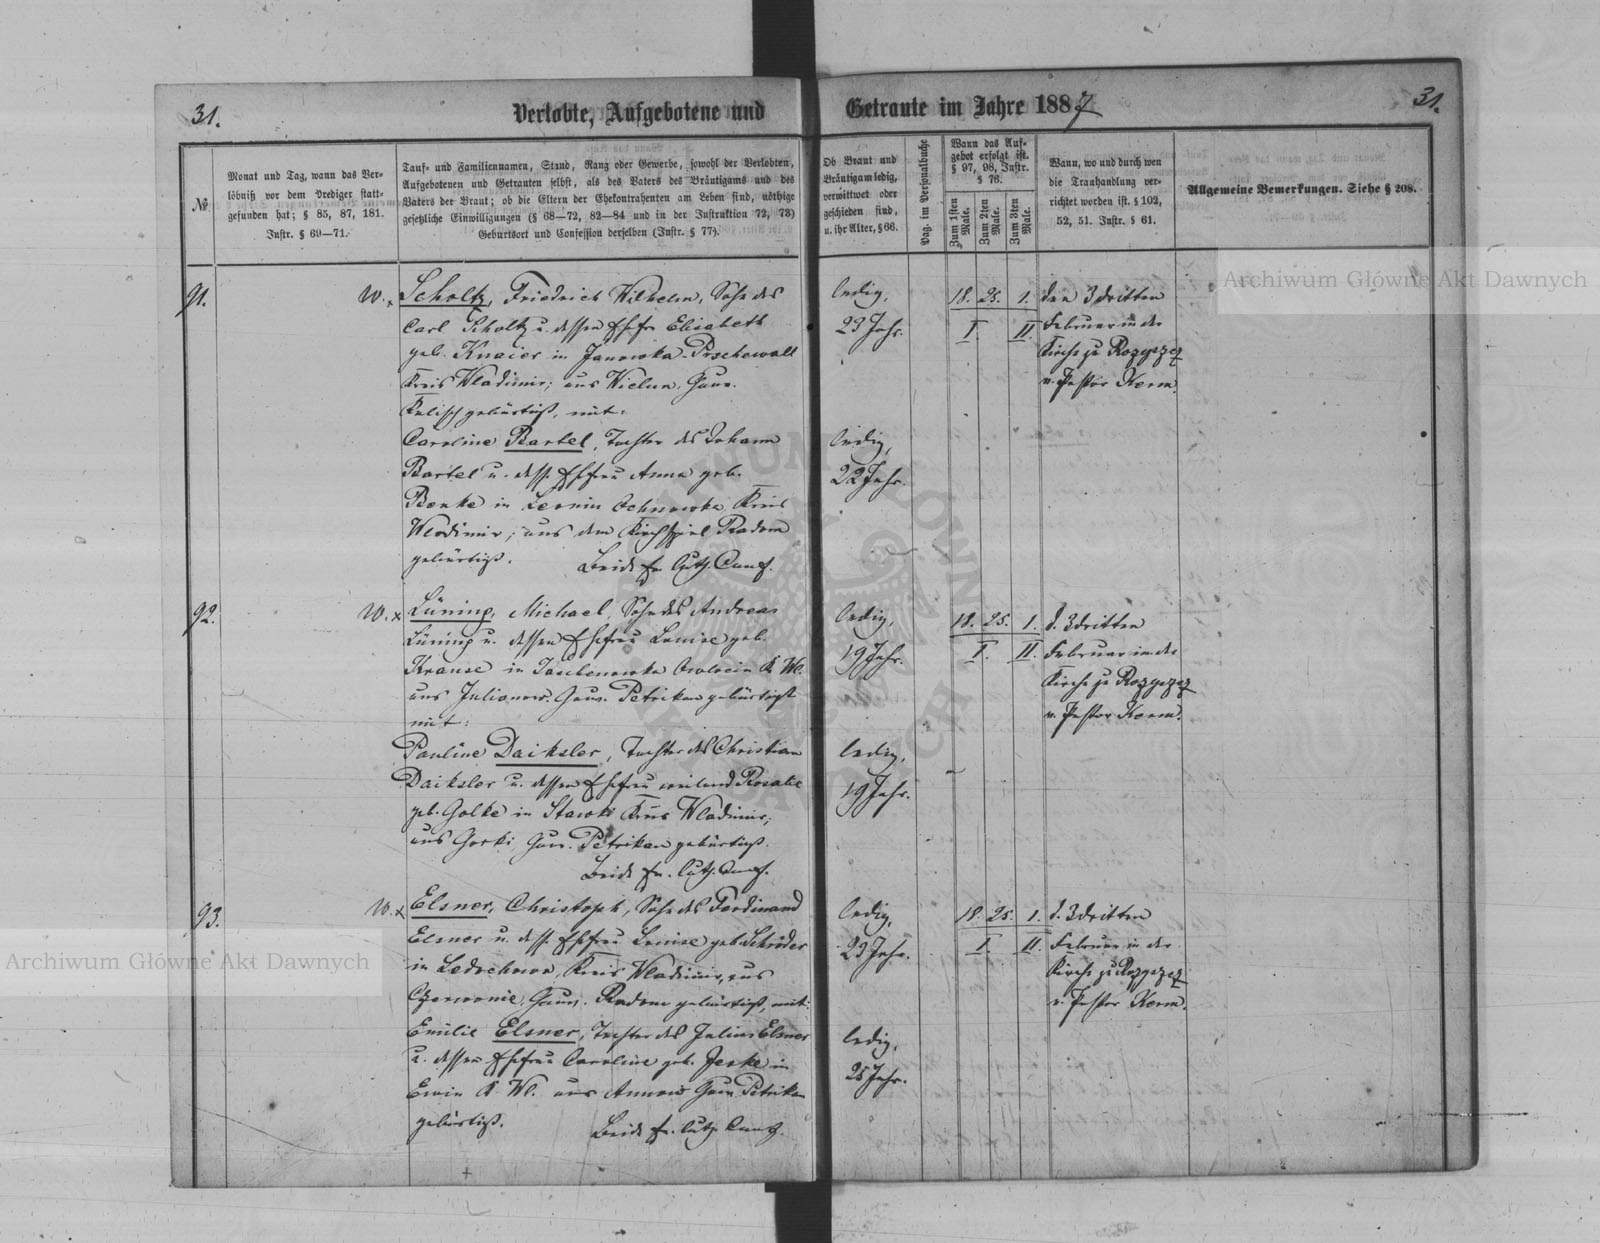 31.
Verlobte, Aufgebotene und
Getraute im Jahre 1887
31.
№
Monat und Tag, wann das Ver-
löbniß vor dem Prediger statt-
gefunden hat; § 85, 87, 181.
Instr. § 69—71.
Tauf- und Familiennamen, Stand, Rang oder Gewerbe, sowohl der Verlobten,
Aufgebotenen und Getrauten selbst, als des Vaters des Bräutigams und des
Vaters der Braut; ob die Eltern der Ehekontrahenten am Leben sind, nöthige
gesetzliche Einwilligungen (§ 68—72, 82—84 und in der Instruktion 72, 73)
Geburtsort und Confession derselben (Instr. § 77).
Ob Braut und
Bräutigam ledig,
verwittwet oder
geschieden sind,
u. ihr Alter, § 66.
Pag. im Personalbuche
Wann das Auf-
gebot erfolgt ist.
§ 97, 98, Instr.
§ 76.
Zum 1sten Male.
Zum 2ten Male.
Zum 3ten Male.
Wann, wo und durch wen
die Trauhandlung ver-
richtet worden ist. § 102,
52, 51. Instr. § 61.
Allgemeine Bemerkungen. Siehe § 208.
91.
W. x
Scholtz, Friedrich Wilhelm, Sohn des
Carl Scholtz u. dessen Ehefr Elisabeth
geb. Knaier in Janowka-Pschewall
Kreis Wladimir; aus Wielun, Gouv.
Kalisch gebürtig, mit:
Caroline Bartel, Tochter des Johann
Bartel u. dess. Ehefrau Anna geb.
Benke in Leonin Ochnowka Kreis
Wladimir; aus dem Kirchspiel Radom
gebürtig. Beide ev. luth. Conf.
ledig,
23 Jahr.
ledig,
22 Jahr.
18. 25. 1.
I. II.
den 3 dritten
Februar in der
Kirche zu Rozyszcz
v. Pastor Kerm.
92.
W. x
Lüning, Michael, Sohn des Andreas
Lüning u. dessen Ehefrau Louise geb.
Krause in K. Wl.
aus Julianow. Gouv. Petrikau gebürtigt
mit:
Pauline Daiksler, Tochter des Christian
Daiksler u. dessen Ehefrau weiland Rosalie
geb. Golke in Stawki Kreis Wladimir;
aus Gorki Gouv. Petrikau gebürtig.
Beide ev. luth. Conf.
ledig,
19 Jahr.
ledig,
19 Jahr.
18. 25. 1.
I. II.
d. 3 dritten
Februar in der
Kirche zu Rozyszcz
v. Pastor Kerm.
93.
W. x
Elsner, Christoph, Sohn des Ferdinand
Elsner u. dess. Ehefrau Louise geb. Schröder
in Kreis Wladimir, aus
Gouv. Radom gebürtig, mit:
Emilie Elsner, Tochter des Julius Elsner
u. dessen Ehefrau Caroline geb. Jeske in
Erwin K. Wl. aus Annow Gouv Petrikau
gebürtig. Beide ev. luth. Conf.
ledig,
23 Jahr.
ledig,
25 Jahr.
18. 25. 1.
I. II.
d. 3 dritten
Februar in der
Kirche zu Rozyszcz
v. Pastor Kerm.
Archiwum Główne Akt Dawnych
Archiwum Główne Akt Dawnych